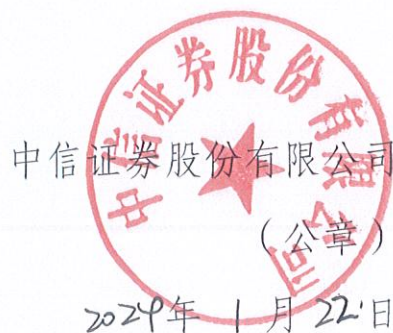 中信证券股份有限公司
中信证券股份有限公司
（公章）
2024年1月22日